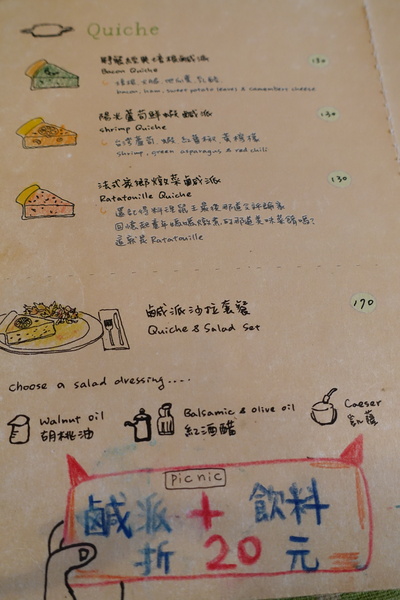 Quiche
130
Bacon Quiche
bacon, ham, sweet potato leaves & camembert cheese
陽光蘆筍鮮蝦鹹派
130
shrimp Quiche
shrimp, green asparagus & red chili
法式家鄉燉菜鹹派
130
Ratatouille Quiche
還記得料理鼠王最後那道
這就是 Ratatouille
鹹派沙拉套餐
170
Quiche & Salad Set
choose a salad dressing....
Walnut oil
胡桃油
Balsamic & olive oil
紅酒醋
Caeser
凱薩
picnic
鹹派 + 飲料
折 20 元